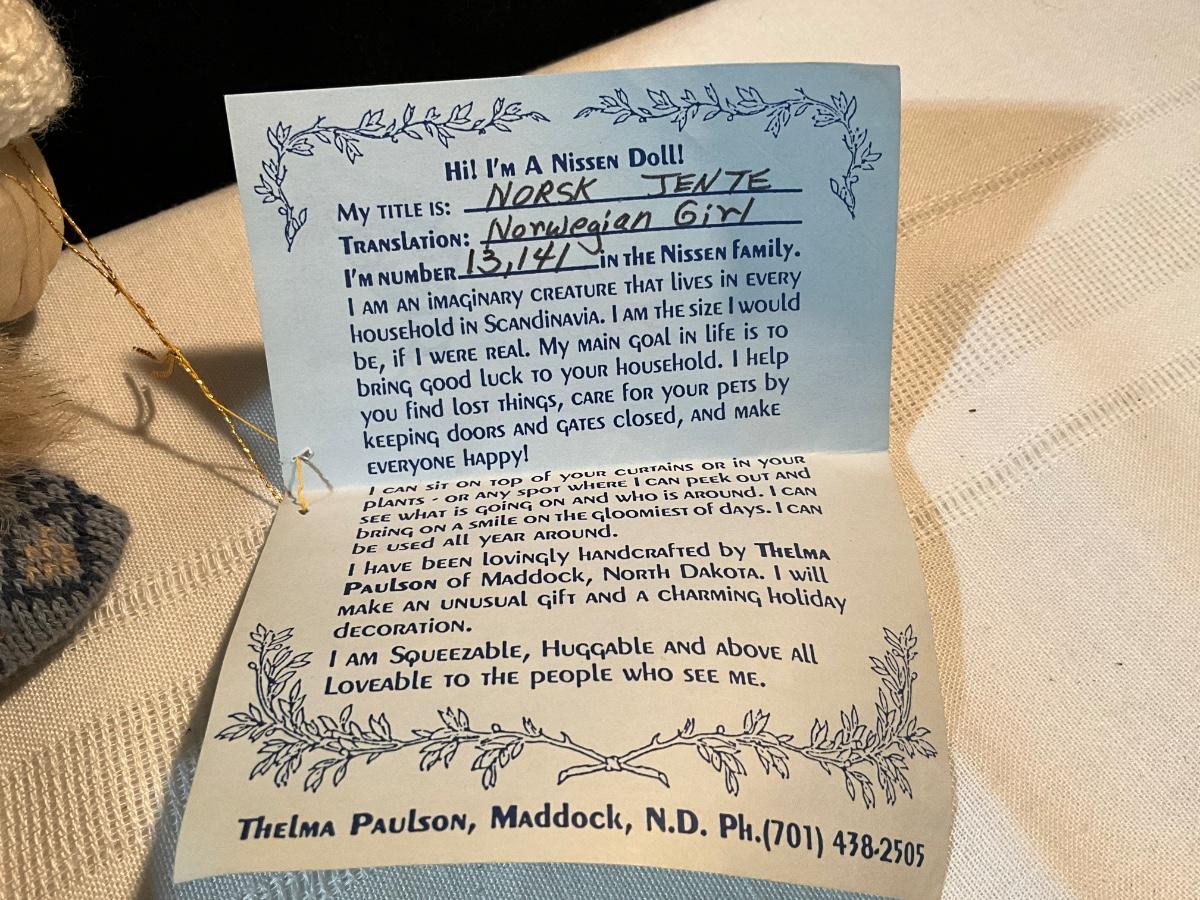 Hi! I'm A Nissen Doll!
My title is: NORSK JENTE
Translation: Norwegian Girl
I'm number 13,141 in the Nissen family.
I am an imaginary creature that lives in every
household in Scandinavia. I am the size I would
be, if I were real. My main goal in life is to
bring good luck to your household. I help
you find lost things, care for your pets by
keeping doors and gates closed, and make
everyone happy!
I can sit on top of your curtains or in your
plants - or any spot where I can peek out and
see what is going on and who is around. I can
bring on a smile on the gloomiest of days. I can
be used all year around.
I have been lovingly handcrafted by Thelma
Paulson of Maddock, North Dakota. I will
make an unusual gift and a charming holiday
decoration.
I am Squeezable, Huggable and above all
Loveable to the people who see me.
Thelma Paulson, Maddock, N.D. Ph.(701) 438-2505